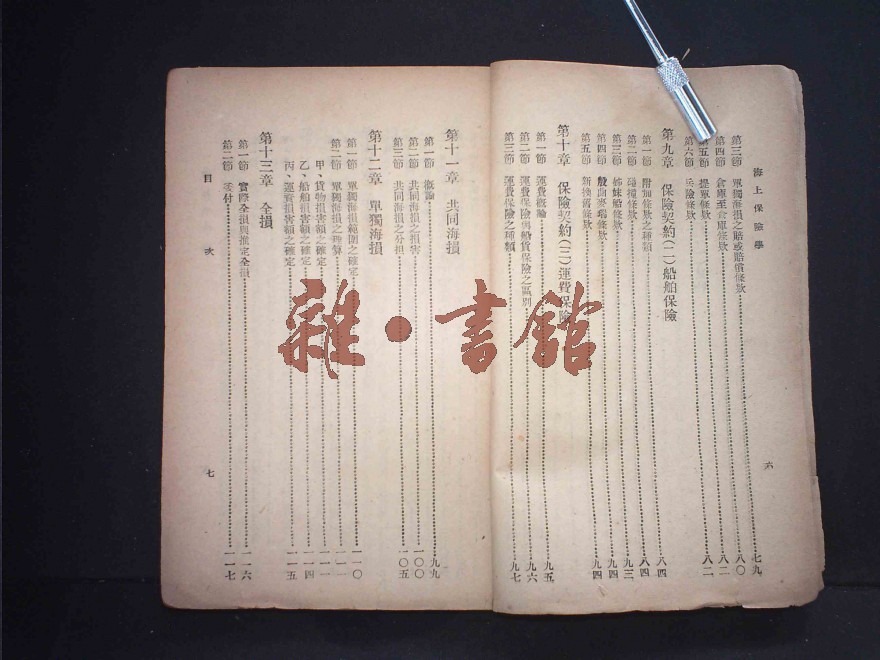 海上保險學
六
第三節 單獨海損之賠或賠償條款……七九
第四節 倉庫至倉庫條款……八〇
第五節 提單條款……八二
第六節 兵險條款……八二
第九章 保險契約(二)船舶保險
第一節 附加條款之種類……八四
第二節 碰撞條款……八四
第三節 姊妹船條款……九三
第四節 條款……九四
第五節 新換舊條款……九四
第十章 保險契約(三)運費保險
第一節 運費概論……九五
第二節 運費保險與船貨保險之區別……九六
第三節 運費保險之種類……九七
第十一章 共同海損
第一節 概論……九九
第二節 共同海損之損害……一〇〇
第三節 共同海損之分担……一〇五
第十二章 單獨海損
第一節 單獨海損範圍之確定……一一〇
第二節 單獨海損之理算……一一一
甲、貨物損害額之確定……一一一
乙、船舶損害額之確定……一一四
丙、運費損害額之確定……一一五
第十三章 全損
第一節 實際全損與推定全損……一一六
第二節 委付……一一七
目次
七
雜·書館